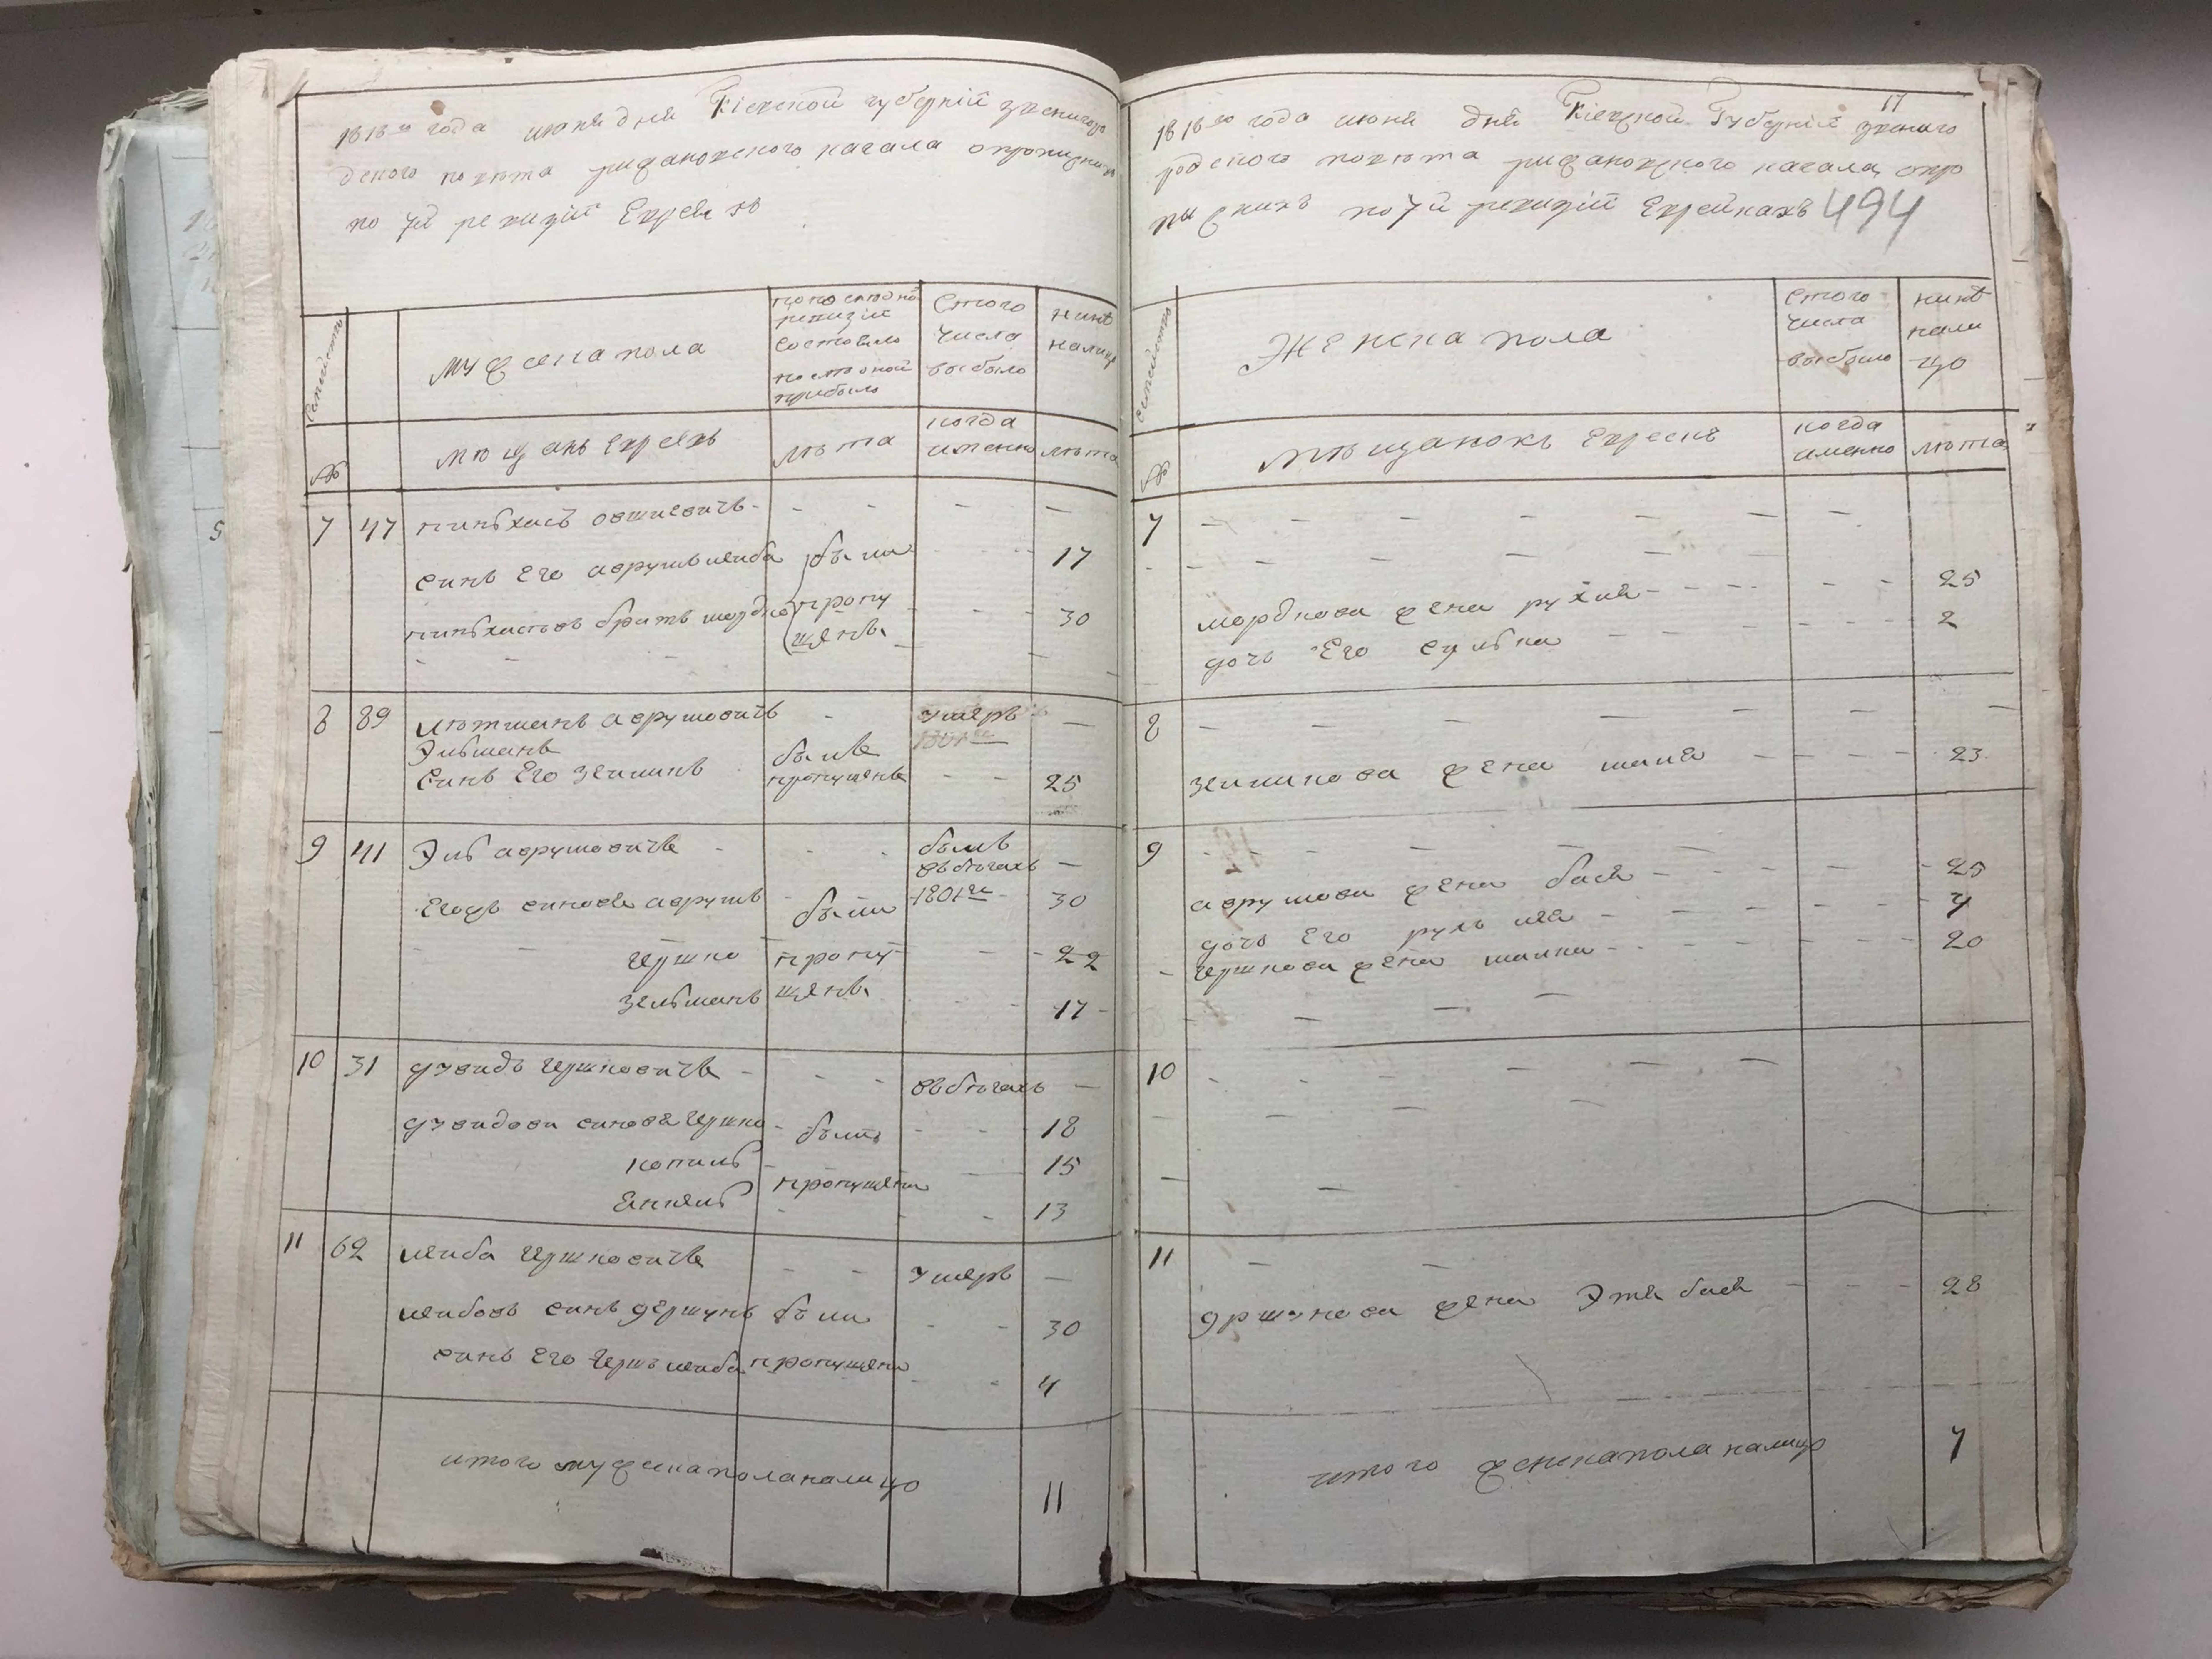 1818го года июня дня Кіевской губерніи звениго
родского повета рижановского кагала опропизних
по 7й ревизіи Евреяхъ
семействъ
Мужеска пола
по последней ревизіи состояло и после оной прибыло
С того числа выбыло
ныне налицо
№
мещанъ Евреевъ
лѣта
когда именно
лѣта
7 47 пинхасъ овшіовичъ - - - -
синъ Его аврумъ лейба были - - 17
пинхасовъ братъ мордко пропу щены - - 30
8 89 лѣтманъ аврумовичъ - умеръ -
Зильманъ
синъ Его зелманъ былъ пропущенъ - - 25
9 41 Эль аврумовичъ - - былъ въ бегахъ -
Егожъ синовя аврумъ были 1801го 30
гершко пропу - - 22
зельманъ щены - - 17
10 31 дувидъ гершковичъ - - въ бегахъ -
дувидови синовя гершко были - - 18
копиль - 15
Янкель пропущени - - 13
11 62 лейба гершковичъ - - умеръ -
лейбовъ синъ дершунъ были - - 30
синъ Его гершъ лейба пропущени - - 4
итого мужеска пола налицо 11
17
1818го года июня дня Кіевской Губерніи звениго
родского повета рижановского кагала, опро
пизнихъ по 7й ревизіи Еврейкахъ 494
семействъ
Женска пола
с того числа выбыло
ныне нали цо
№
мещанокъ Евреекъ
когда именно
лѣта
7 - - - - - - -
мордкова жена рухля - - - - - 25
дочь Его сулька - - - - - 2
8 - - - - - - -
зелманова жена маня - - - - 23
9 - - - - - -
аврумова жена бася - - - - - 25
дочь Его рухля - - - - - 4
гершкова жена малка - - - - - 20
10 - - - - - -
11 - -
дршунова жена Этя бася - - - 28
итого женска пола налицо 7